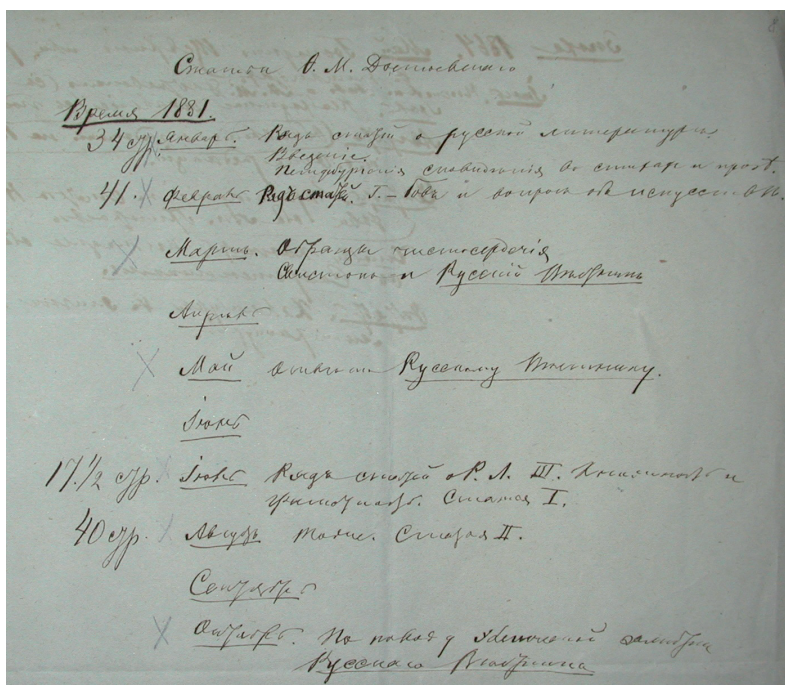 Статьи Ѳ. М. Достоевскаго
Время 1881.
34 стр. Январь. Рядъ статей о русской литературѣ.
Введеніе.
Петербургскія сновидѣнія въ стихахъ и прозѣ.
41. Февраль Рядъ статей. Г. –бовъ и вопросъ объ искусствѣ.
Мартъ. Образцы чистосердечія
Свистокъ и Русскій Вѣстникъ
Апрѣль
Май Отвѣтъ Русскому Вѣстнику.
Іюнь
17 1/2 стр. Іюль Рядъ статей о Р. Л. III. Книжность и
грамотность. Статья I.
40 стр. Августъ тоже. Статья II.
Сентябрь
Октябрь. По поводу элегической замѣтки
Русскаго Вѣстника